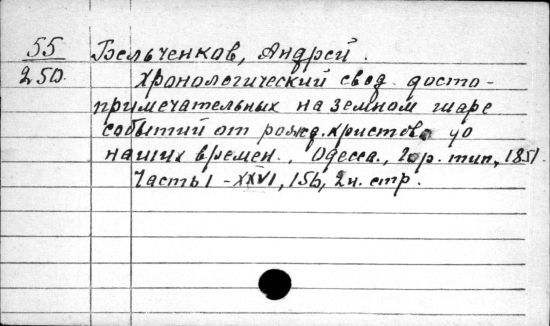 55 Бельченков, Андрей.
250. Хронологический свод досто-
примечательных на земном шаре
событий от рожд. христова до
наших времен., Одесса., Гор. тип., 1851.
Часть I - XXVI, 156, 2 н. стр.